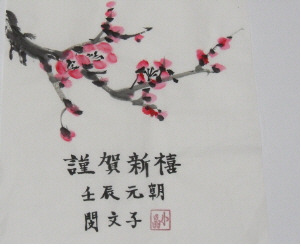 謹賀新禧
壬辰元朝
閔文子